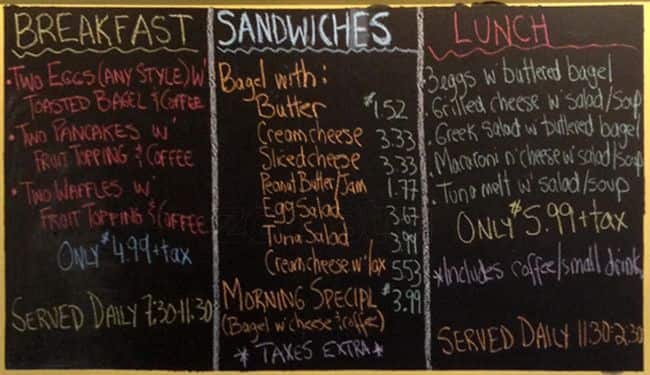 BREAKFAST
• Two Eggs (any style) w'
Toasted Bagel & Coffee
• Two Pancakes w'
Fruit Topping & Coffee
• Two Waffles w'
Fruit Topping & Coffee
Only $4.99 + tax
Served Daily 7:30-11:30
SANDWICHES
Bagel with:
Butter $1.52
Creamcheese 3.33
Slicedcheese 3.33
Peanut Butter/Jam 1.77
Egg Salad 3.67
Tuna Salad 3.99
Creamcheese w' lox 5.53
Morning Special $3.99
(Bagel w' cheese & coffee)
* Taxes Extra *
LUNCH
• 3 eggs w' buttered bagel
• Grilled cheese w' salad/soup
• Greek salad w' buttered bagel
• Macaroni n' cheese w' salad/soup
• Tuna melt w' salad/soup
Only $5.99 + tax
*Includes coffee/small drink
Served Daily 11:30-2:30